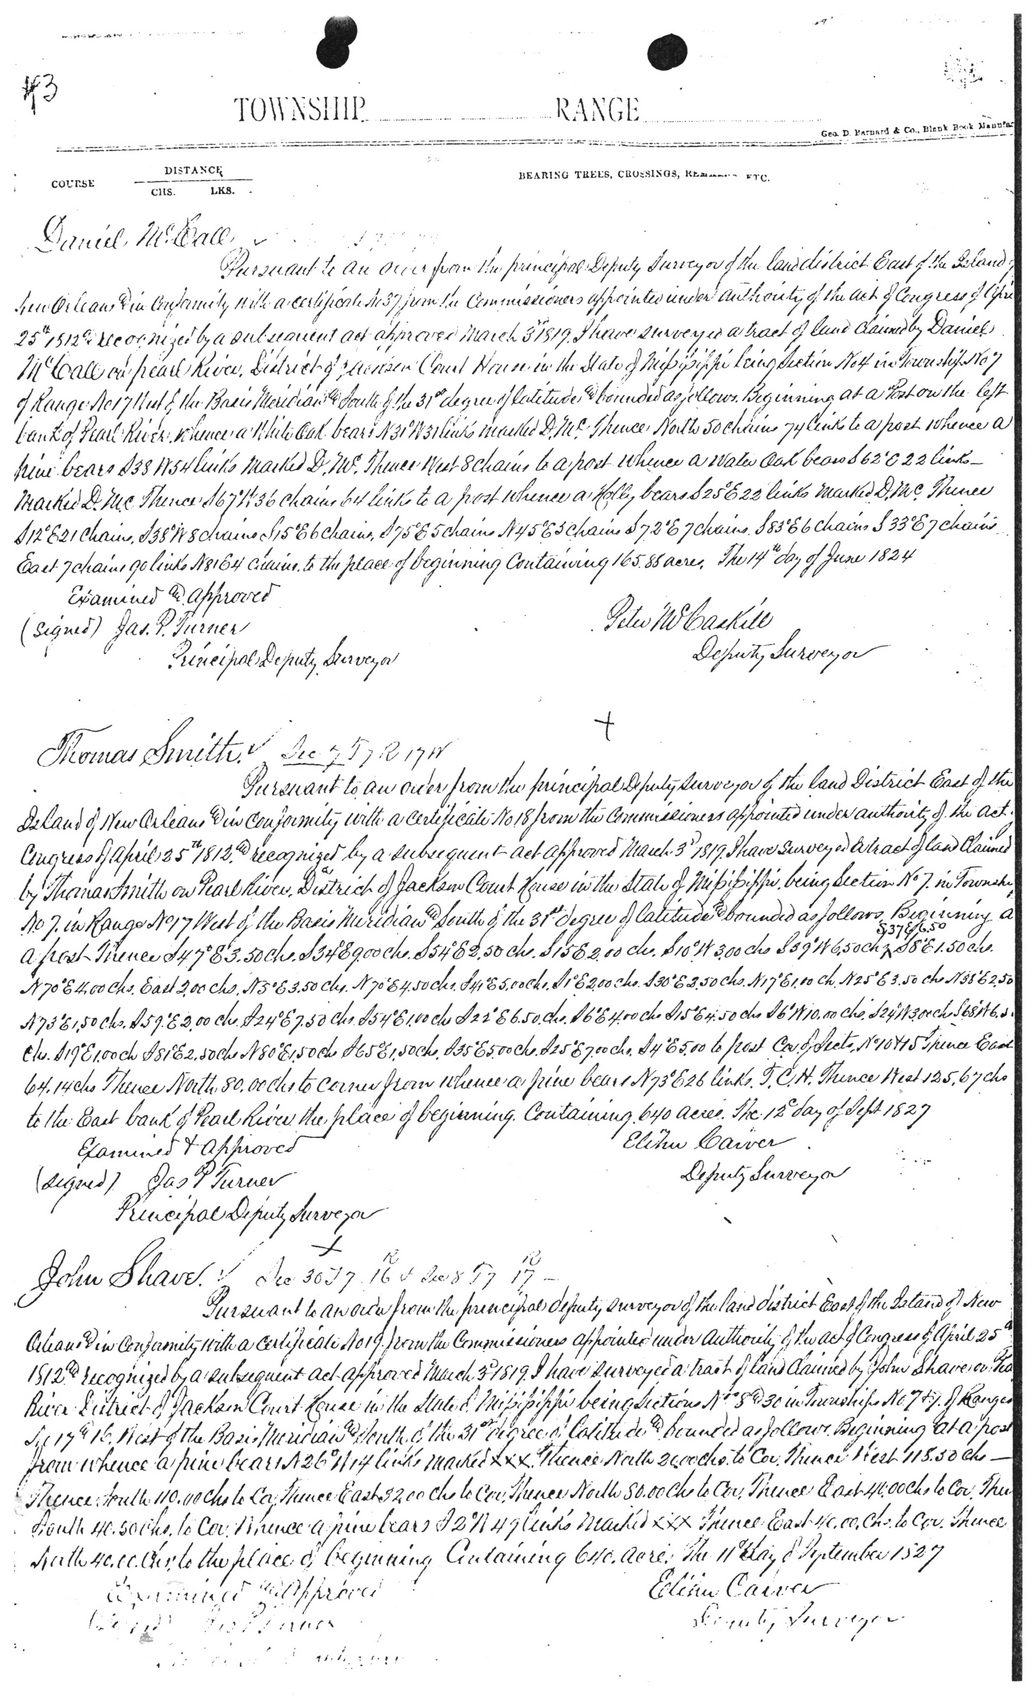 43
TOWNSHIP RANGE
Geo. D. Barnard & Co., Blank Book Manufac
COURSE DISTANCE BEARING TREES, CROSSINGS, ETC.
CHS. LKS.
Daniel McCall
Pursuant to an order from the principal Deputy Surveyor of the land district East of the Island
New Orleans & in Conformity with a certificate No 37 from the Commissioners appointed under authority of the act of Congress of Apri
25th 1812 & recognized by a subsequent act approved March 3d 1819. I have surveyed a tract of land claimed by Daniel
McCall on pearl River, District of Jackson Court House in the State of Mississippi being Section No 4 in Township No 7
of Range No 17 West of the Basis Meridian & South of the 31st degree of latitude & bounded as follows. Beginning at a Post on the left
bank of Pearl River whence a White Oak bears N31°W31 links marked D. Mc. Thence North 50 chains 74 links to a post whence a
pine bears S38 W54 links marked D. Mc. Thence West 8 chains to a post whence a Water Oak bears S62°O 22 links
Marked D. Mc Thence S67°W36 chains 64 links to a post whence a Holly bears S25°E22 links marked D. Mc, Thence
S12°E21 chains, S38°W8 chains S15°E6 chains, S75°E5 chains N45°E3 chains S72°E7 chains, S83°E6 chains S33°E7 chains
East 7 chains 90 links N81E4 chains. to the place of beginning Containing 165.88 acres. The 14th day of June 1824
Examined & Approved
(signed) Jas. P. Turner Peter McCaskill
Principal Deputy Surveyor Deputy Surveyor
Thomas Smith. Sec 7 T7 R 17W
Pursuant to an order from the principal Deputy Surveyor of the land District East of the
Island of New Orleans & in Conformity with a certificate No 18 from the Commissioners appointed under authority of the act
Congress of April 25th 1812, & recognized by a subsequent act approved March 3d 1819. I have surveyed a tract of land Claimed
by Thomas Smith on Pearl River, District of Jackson Court House in the State of Mississippi, being Section No 7. in Townshi
No 7. in Range No 17 West of the Basis Meridian & South of the 31st degree of latitude & bounded as follows, Beginning a
S37E6.50
a post Thence S47°E3.50chs. S34°E9.00chs. S54°E2.50 chs. S15E2.00 chs. S10°W3.00chs S39°W6.50ch S8°E1.50chs.
N70°E4.00chs. East 2.00chs. N3°E3.50 chs. N70°E4.50chs. S41°E5.00chs. S1°E2.00chs. S30°E3.50chs. N17°E1.00 ch. N25°E3.50 chs N38°E2.50
N73°E1.50chs. S59°E2.00 chs. S24°E7.50 chs. S54°E1.00 chs S22°E6.50.chs. S6°E4.00chs S15°E4.50 chs S6°W10.00 chs. S24°W3.00chs S68°W6.5
chs. S19°E1.00ch S81°E2.50chs N80°E1.50chs S65°E1.50chs. S35°E5.00chs. S25°E7.00chs. S4°E5.00 to post Cor. of Sects, No 10 & 15 Thence East
64.14chs Thence North 80.00chs to corner from whence a pine bears N73°E26 links. T.C.H. Thence West 125.67chs
to the East bank of Pearl River the place of beginning. Containing 640 acres. The 12th day of Sept 1827
Examined & Approved Elihu Carver
(signed) Jas P Turner Deputy Surveyor
Principal Deputy Surveyor
John Shave. Sec 30 T7 R 16 & Sec 8 T7 R 17
Pursuant to an order from the principal deputy surveyor of the land district East of the Island of New
Orleans & in Conformity with a certificate No 19. from the Commissioners appointed under Authority of the act of Congress of April 25th
1812 & recognized by a subsequent act approved March 3d 1819. I have surveyed a tract of land Claimed by John Shave on
River District of Jackson Court House in the State of Mississippi being Sections Nos 8 & 30 in Townships No 7 & 7. of Ranges
17 & 16, West of the Basis Meridian & South of the 31st degree of latitude & bounded as follows, Beginning at a post
from whence a pine bears N26°W14 links marked XXX. Thence North 20.00chs. to Cor. Thence West 118.50 chs
Thence South 110.00chs to Cor. Thence East 32.00 chs to Cor, Thence North 50.00chs to Cor. Thence East 40.00chs to Cor. Then
South 40.50chs. to Cor. Whence a pine bears S2°W 49 links marked XXX Thence East 40.00. Chs. to Cor. Thence
North 40.00 Chs. to the place of beginning Containing 640. acres. The 11th day of September 1827
Examined & Approved Elihu Carver
Deputy Surveyor